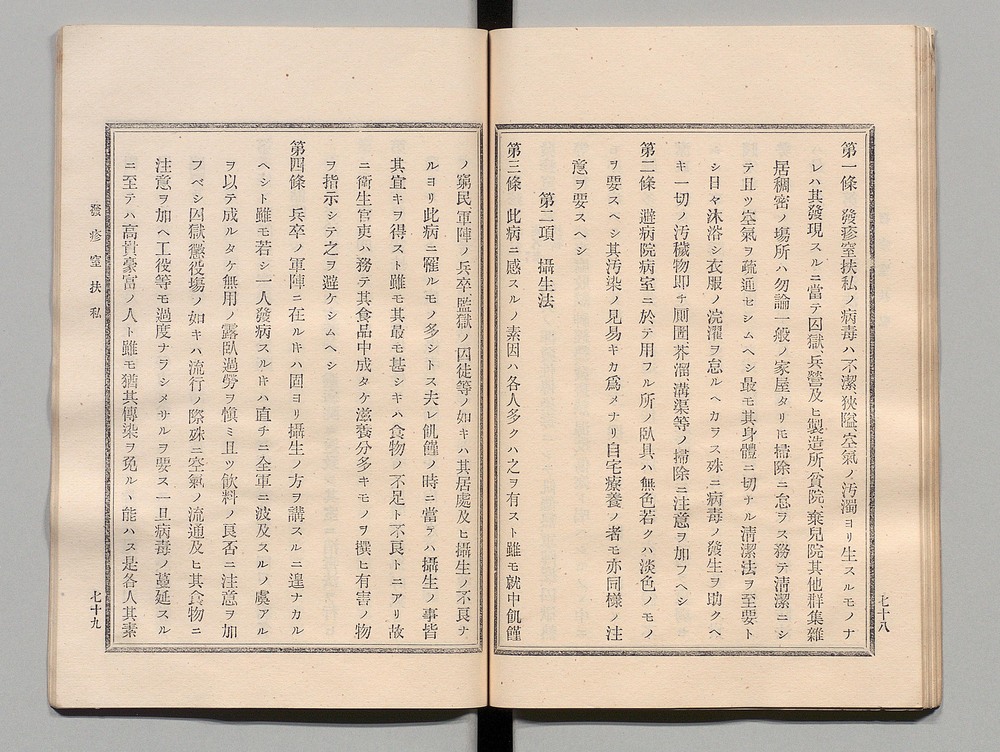 第一條　發疹窒扶私ノ病毒ハ不潔、狹隘、空氣ノ汚濁ヨリ生スルモノナ
レハ其發現スルニ當テ囚獄、兵營及ヒ製造所、貧院、棄兒院其他群集雜
居稠密ノ場所ハ勿論一般ノ家屋タリ𪜈掃除ニ怠ラス務テ清潔ニシ
テ且ツ空氣ヲ疏通セシムヘシ最モ其身體ニ切ナル清潔法ヲ至要ト
シ日々沐浴シ衣服ノ浣濯ヲ怠ルヘカラス殊ニ病毒ノ發生ヲ助クヘ
キ一切ノ汚穢物即チ厠圊芥溜溝渠等ノ掃除ニ注意ヲ加フヘシ
第二條　避病院病室ニ於テ用フル所ノ臥具ハ無色若クハ淡色ノモノ
ヲ要スヘシ其汚染ノ見易キカ爲メナリ自宅療養ノ者モ亦同樣ノ注
意ヲ要スヘシ
第二項　攝生法
第三條　此病ニ感スルノ素因ハ各人多クハ之ヲ有スト雖モ就中飢饉
七十八
ノ窮民、軍陣ノ兵卒、監獄ノ囚徒等ノ如キハ其居處及ヒ攝生ノ不良ナ
ルヨリ此病ニ罹ルモノ多シトス夫レ飢饉ノ時ニ當テハ攝生ノ事皆
其宜キヲ得スト雖モ其最モ甚シキハ食物ノ不足ト不良トニアリ故
ニ衞生官吏ハ務テ其食品中成タケ滋養分多キモノヲ撰ヒ有害ノ物
ヲ指示シテ之ヲ避ケシムヘシ
第四條　兵卒ノ軍陣ニ在ルキハ固ヨリ攝生ノ方ヲ講スルニ遑ナカル
ヘシト雖モ若シ一人發病スルキハ直チニ全軍ニ波及スルノ虞アル
ヲ以テ成ルタケ無用ノ露臥過勞ヲ愼ミ且ツ飮料ノ良否ニ注意ヲ加
フベシ囚獄懲役場ノ如キハ流行ノ際殊ニ空氣ノ流通及ヒ其食物ニ
注意ヲ加ヘ工役等モ過度ナラシメサルヲ要ス一旦病毒ノ蔓延スル
ニ至テハ高貴豪富ノ人ト雖モ猶其傳染ヲ免ルヽ能ハス是各人其素
發疹窒扶私
七十九